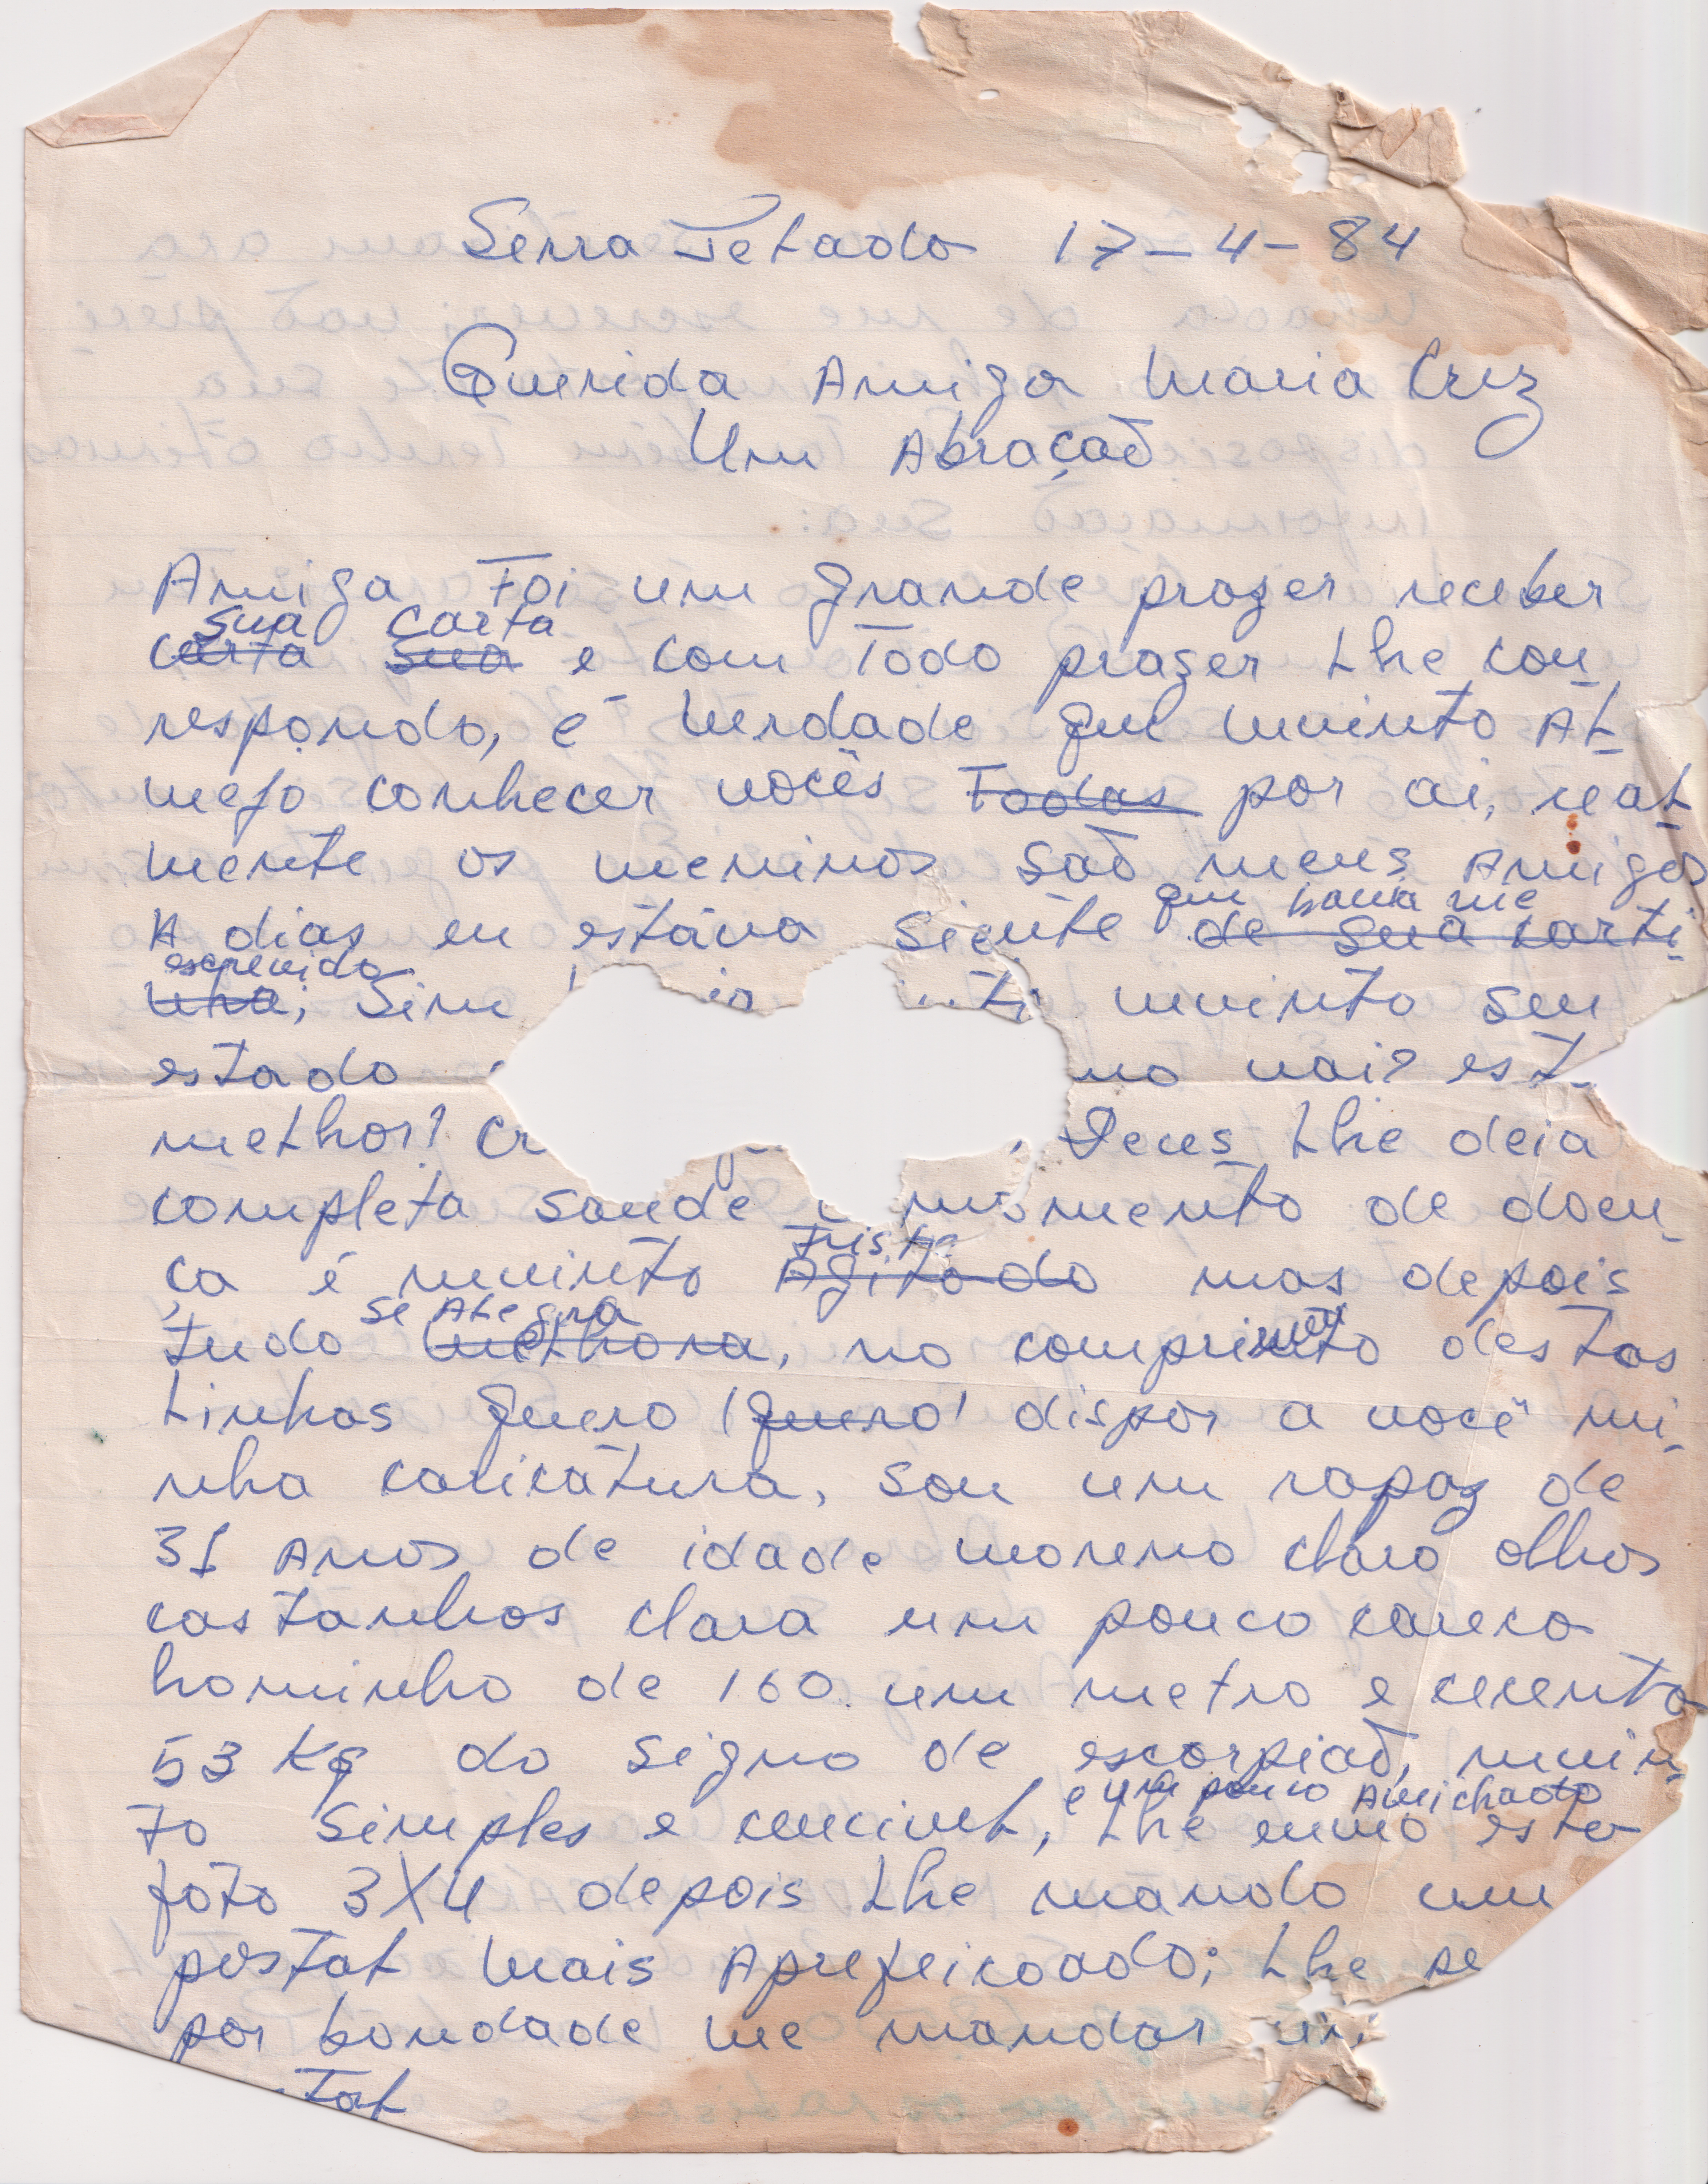 Serra Tetado 17-4-84
Querida Amiga Maria Cruz
Um Abraçaõ
Amiga Foi um grande prazer receber
sua carta
carta sua e com Todo prazer Lhe cor
respondo, é Verdade que muinto AL
mejo conhecer vocês Todas por ai, reaL
mente os meninos saõ meus Amigos
A dias eu estáva Siente de sua carti
que havia me
escrevido
nha, Sim muinto seu
estado vai? est
melhor? Deus Lhe deia
completa saude momento de doen
ça é muinto Agitado mas depois
Triste
se ALegra
tudo meLhora, no comprimento destas
Linhas quero (quero) dispor a você mi
nha caricatura, sou um rapaz de
31 Anos de idade moreno claro olhos
castanhos clara um pouco careco
hominho de 160. um metro e cecenta
53 Kg do signo de escorpiaõ, muin
to Simples e cenciveL, Lhe envio esta
e um pouco Amichado
foto 3X4 depois Lhe mando um
postaL Mais Aprefeicoado; Lhe pe
por bondade me mandar um
taL